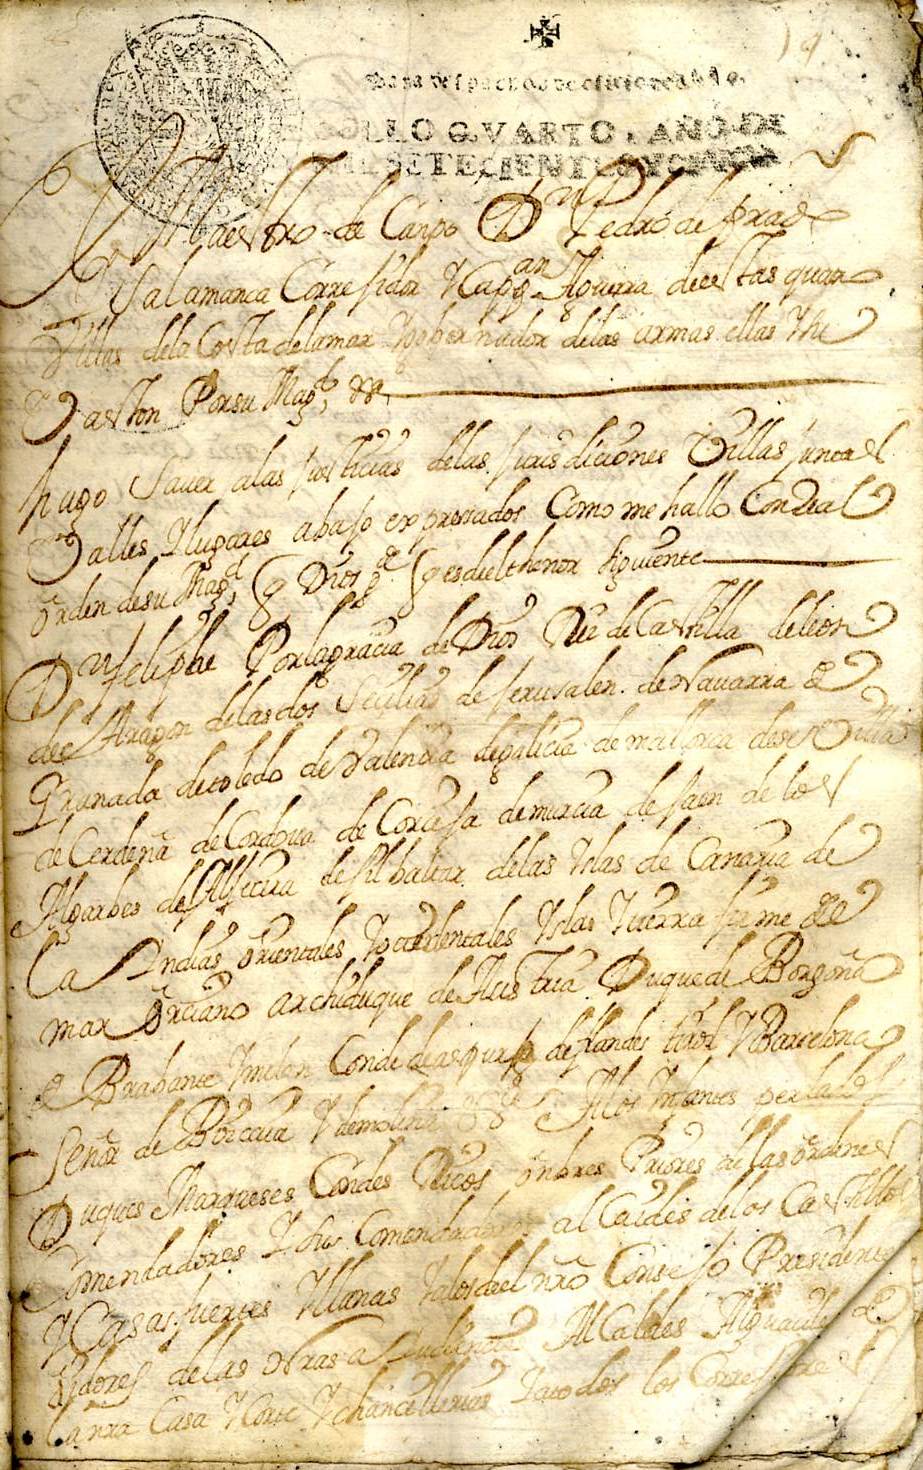 19
Para despachos de oficio
SELLO QVARTO, AÑO DE
MIL SETECIENTOS Y
El Maestro de Canpo Dn Pedro de prado
y Salamanca Correjidor y Capan Aguerra deestas quatro
Villas dela Costa delamar y gobernador delas armas ellas y su
Vaston Por su Magd, &a,
hago Saver alas justicias delas jurisdiciones Villas juntas
Valles y lugares abajo expresados Como me hallo Con Real
orden desu Magd, q Dios gde q es delthenor siguiente
Dn feliphe Por la gracia de Dios Rei de Castilla de leon
de Aragon delas dos Secilias de jerusalen de Navarra de
Granada de toledo de Valencia de galicia de mallorca de sevilla
de Cerdeña de Cordova de Corcega de murcia de jaen de los
Algarbes de Aljecira de jilbaltar delas yslas de Canaria de
las Indias orientales y ocidentales yslas y tierra firme del
mar oceano archiduque de Austria Duque de Borgoña
de Brabante y milan Conde de aspurg de flandes tirol y Barcelona
Señor de Bizcaia y de molina &a Alos ynfantes perlados
Duques Marqueses Condes Ricos onbres Priores de las ordenes
Comendadores y sus Comendadores alCaides delos Castillos
y Casas fuertes y llanas y alos del nro Consejo Presidentes
oydores de las nras audiencias AlCaldes Alguaciles de
la nra Casa y Corte y chancillerias y a todos los Corregidores